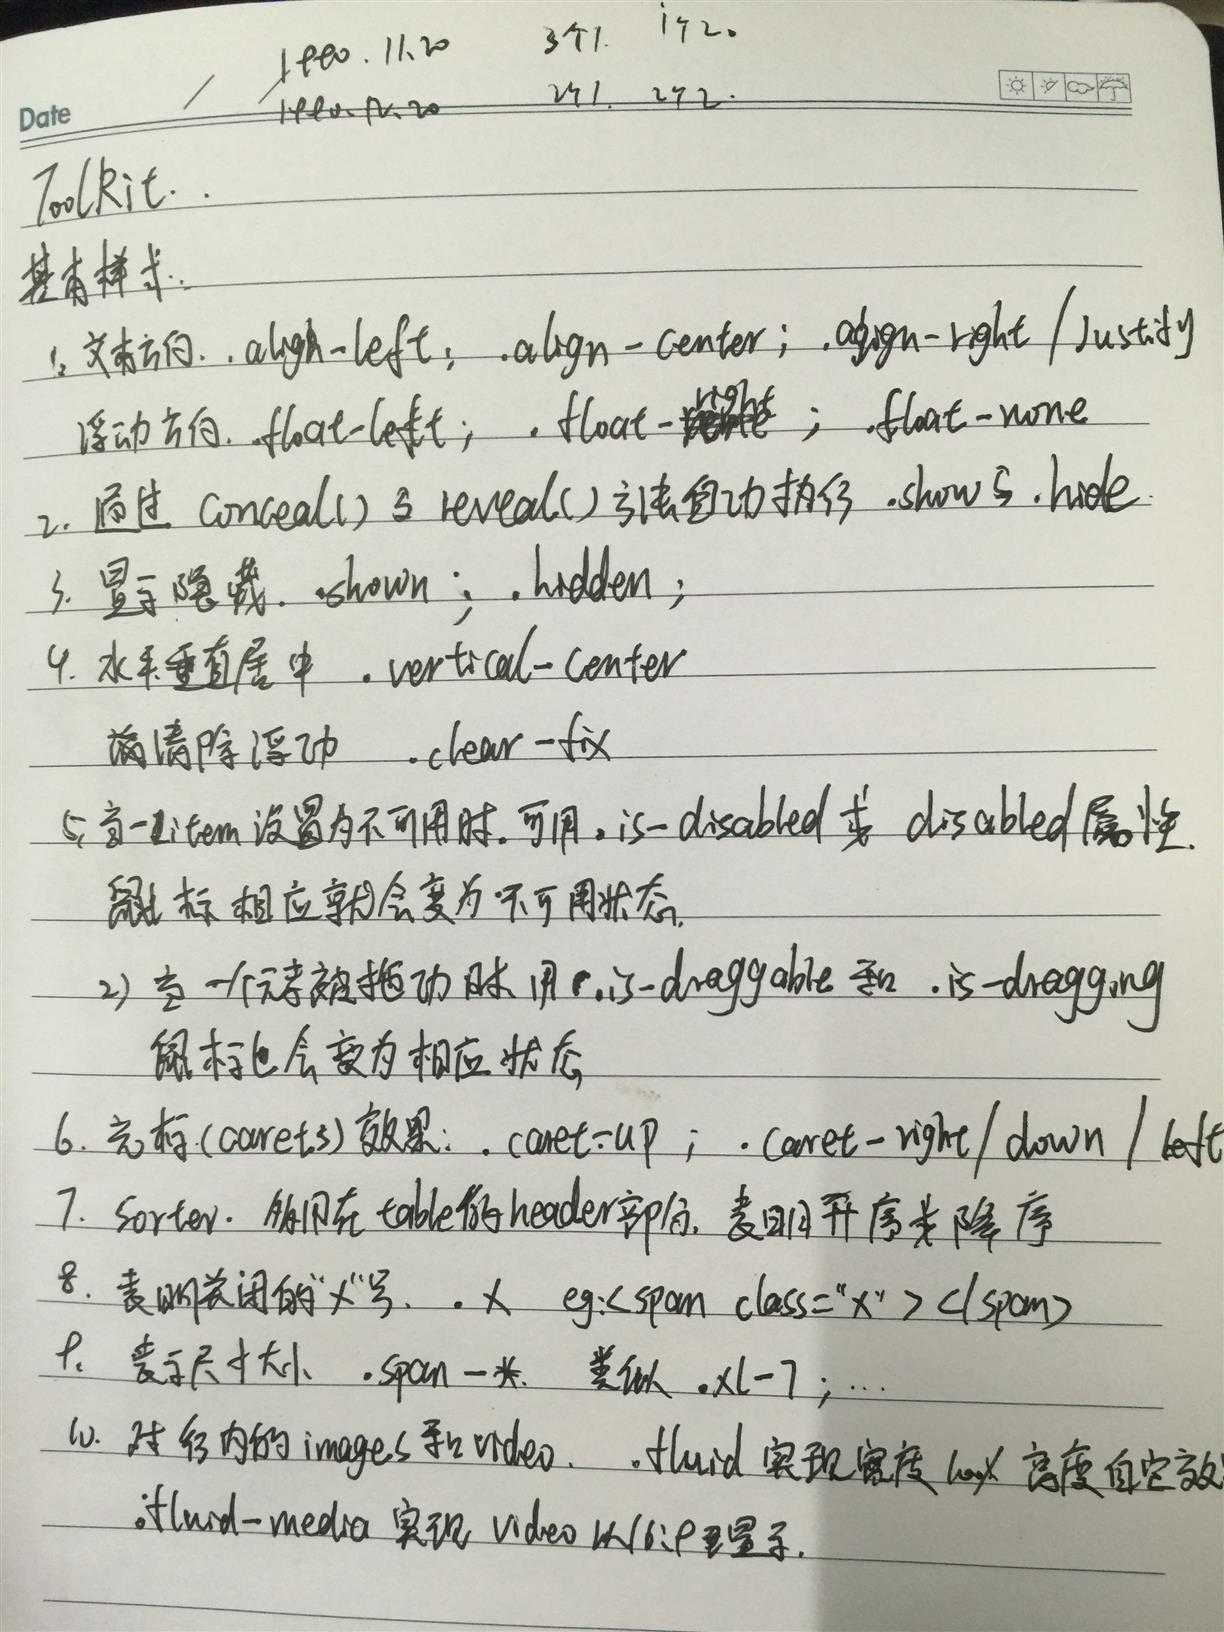 1990.11.20 3个1. 1个2.
Date 1990.12.20 2个1. 2个2.
Toolkit.
基本样式:
1. 文本方向. .align-left; .align-center; .align-right/Justify
浮动方向. .float-left; .float-right; .float-none
2. 通过 conceal()与 reveal()方法自动执行 .show与.hide.
3. 显示隐藏. .shown; .hidden;
4. 水平垂直居中 .vertical-center
清除浮动 .clear-fix
5. 当一item设置为不可用时.可用.is-disabled或 disabled属性.
鼠标相应就会变为不可用状态.
2) 当一个元素被拖动时.用.is-draggable和 .is-dragging
鼠标也会变为相应状态
6. 光标(carets)效果: .caret-up; .caret-right/down/left
7. sorter. 多用在table的header部分.表明升序或降序
8. 表明关闭的"x"号. .x eg:<span class="x"></span>
9. 表示尺寸大小 .span-*. 类似.xl-7;...
10. 对行内的images和video. .fluid实现宽度100% 高度自定效
.fluid-media实现 video以16:9显示.